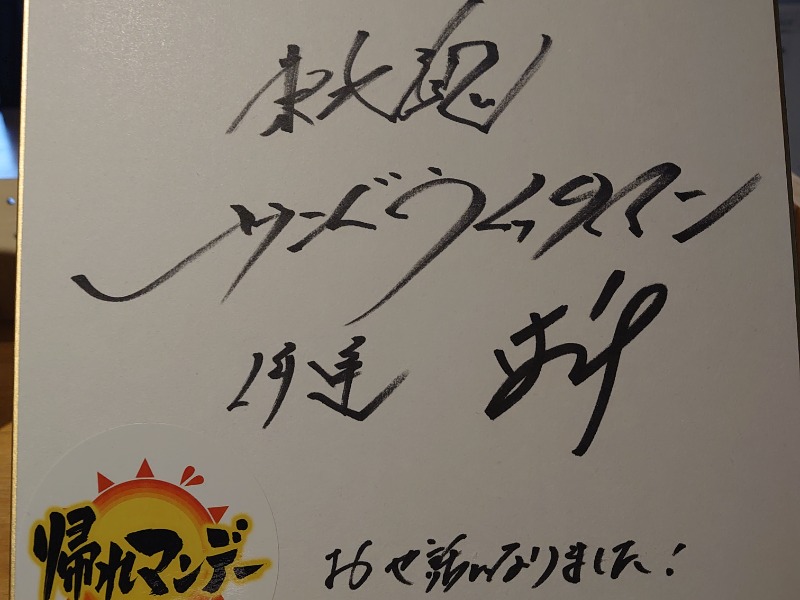 東北魂
サンドウィッチマン
伊達
帰れマンデー
おせ話になりました!